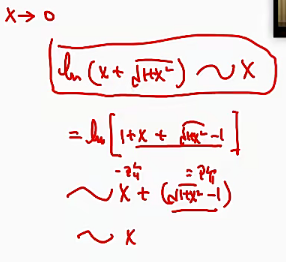 x → 0
ln (x + √(1+x²)) ~ x
= ln [1 + x + √(1+x²) - 1]
一阶 = 二阶
~ x + (√(1+x²) - 1)
~ x